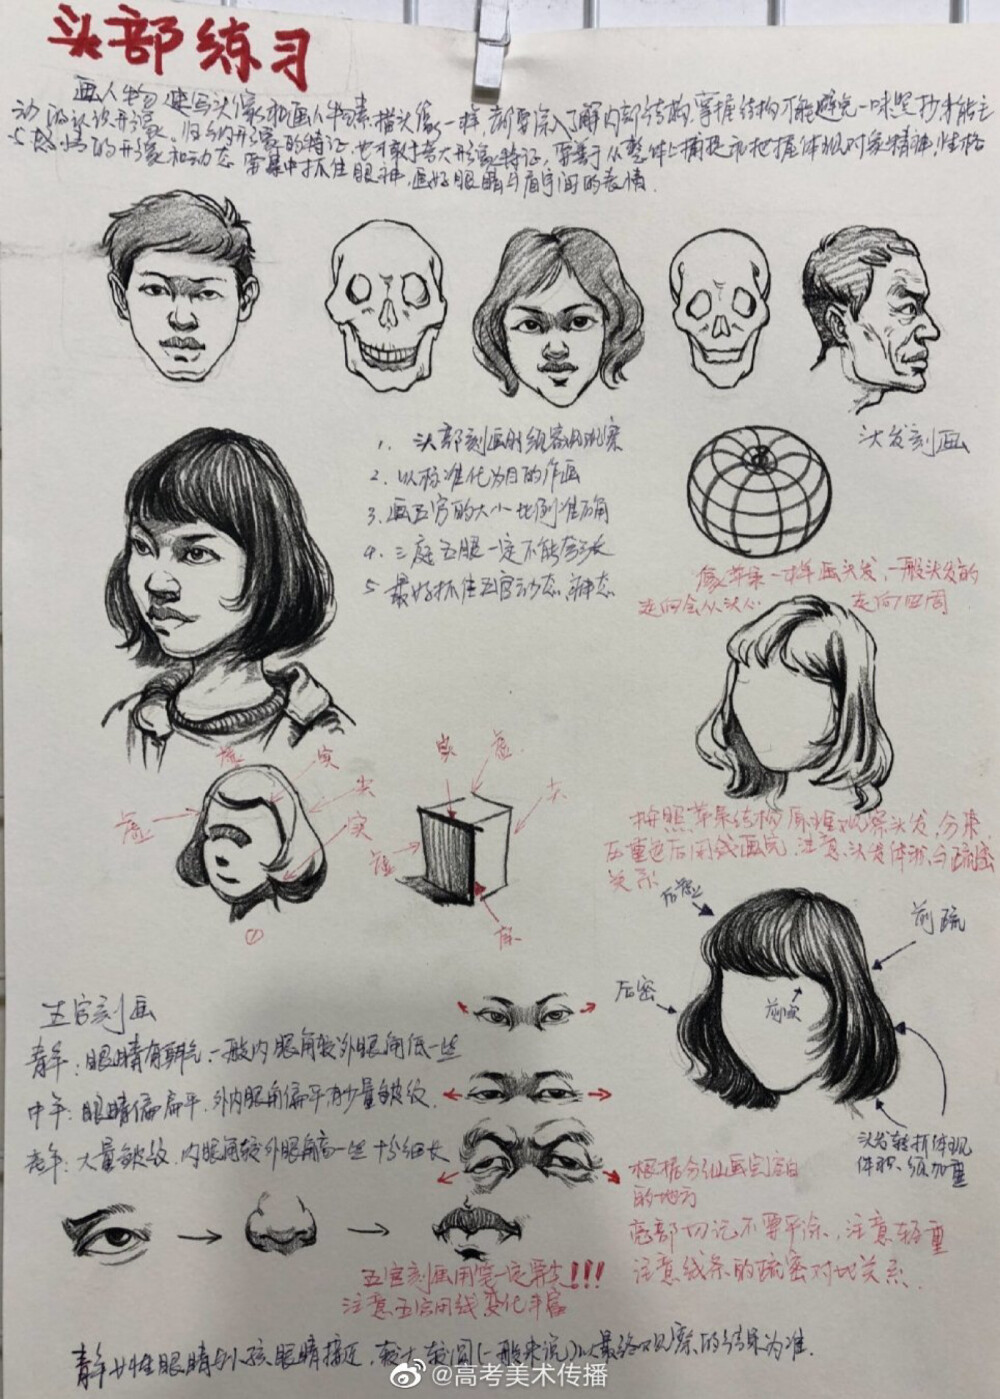 头部练习
画人物速写头像和画人物素描头像一样,都要深入了解内部结构,掌握结构才能避免一味照抄才能主
动的认识形象、归纳形象的特征,也才敢于夸大形象特征,要善于从整体上捕捉和把握体现对象精神,性格
与感情的形象和动态 要集中抓住眼神,画好眼睛与眉宇间的表情.
1. 头部刻画时须客观观察
2. 以标准化为目的作画
3. 画五官的大小比例准确
4. 三庭五眼一定不能夸张
5. 最好抓住五官动态,神态
头发刻画
像苹果一样画头发,一般头发的
走向会从头心 走向四周
虚
实
尖
实
虚
①
实
虚
虚
按照苹果结构原理观察头发,分束
关系
后密
前疏
头发转折体现
体积,须加重
五官刻画
青年:眼睛有朝气,一般内眼角较外眼角低一些
中年:眼睛偏扁平,外内眼角偏平,有少量皱纹.
老年:大量皱纹,内眼角较外眼角高一些 十分细长
根据分组画完空白
的地方
底部切记不要平涂,注意轻重
注意线条的疏密对比关系.
五官刻画用笔一定要尖!!!
注意五官用线变化丰富
青年女性眼睛与小孩眼睛接近,较大,较圆(一般来说)以最终观察的结果为准.
@高考美术传播